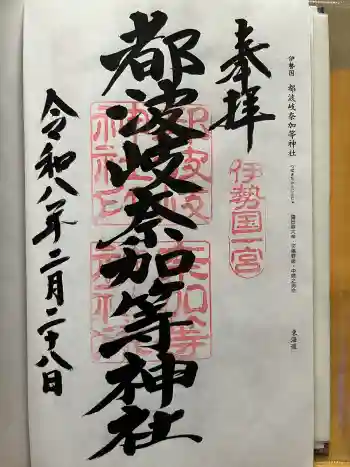 伊勢国 都波岐奈加等神社
東海道
奉拝
伊勢国一宮
都波岐奈加等神社
令和八年二月二十八日